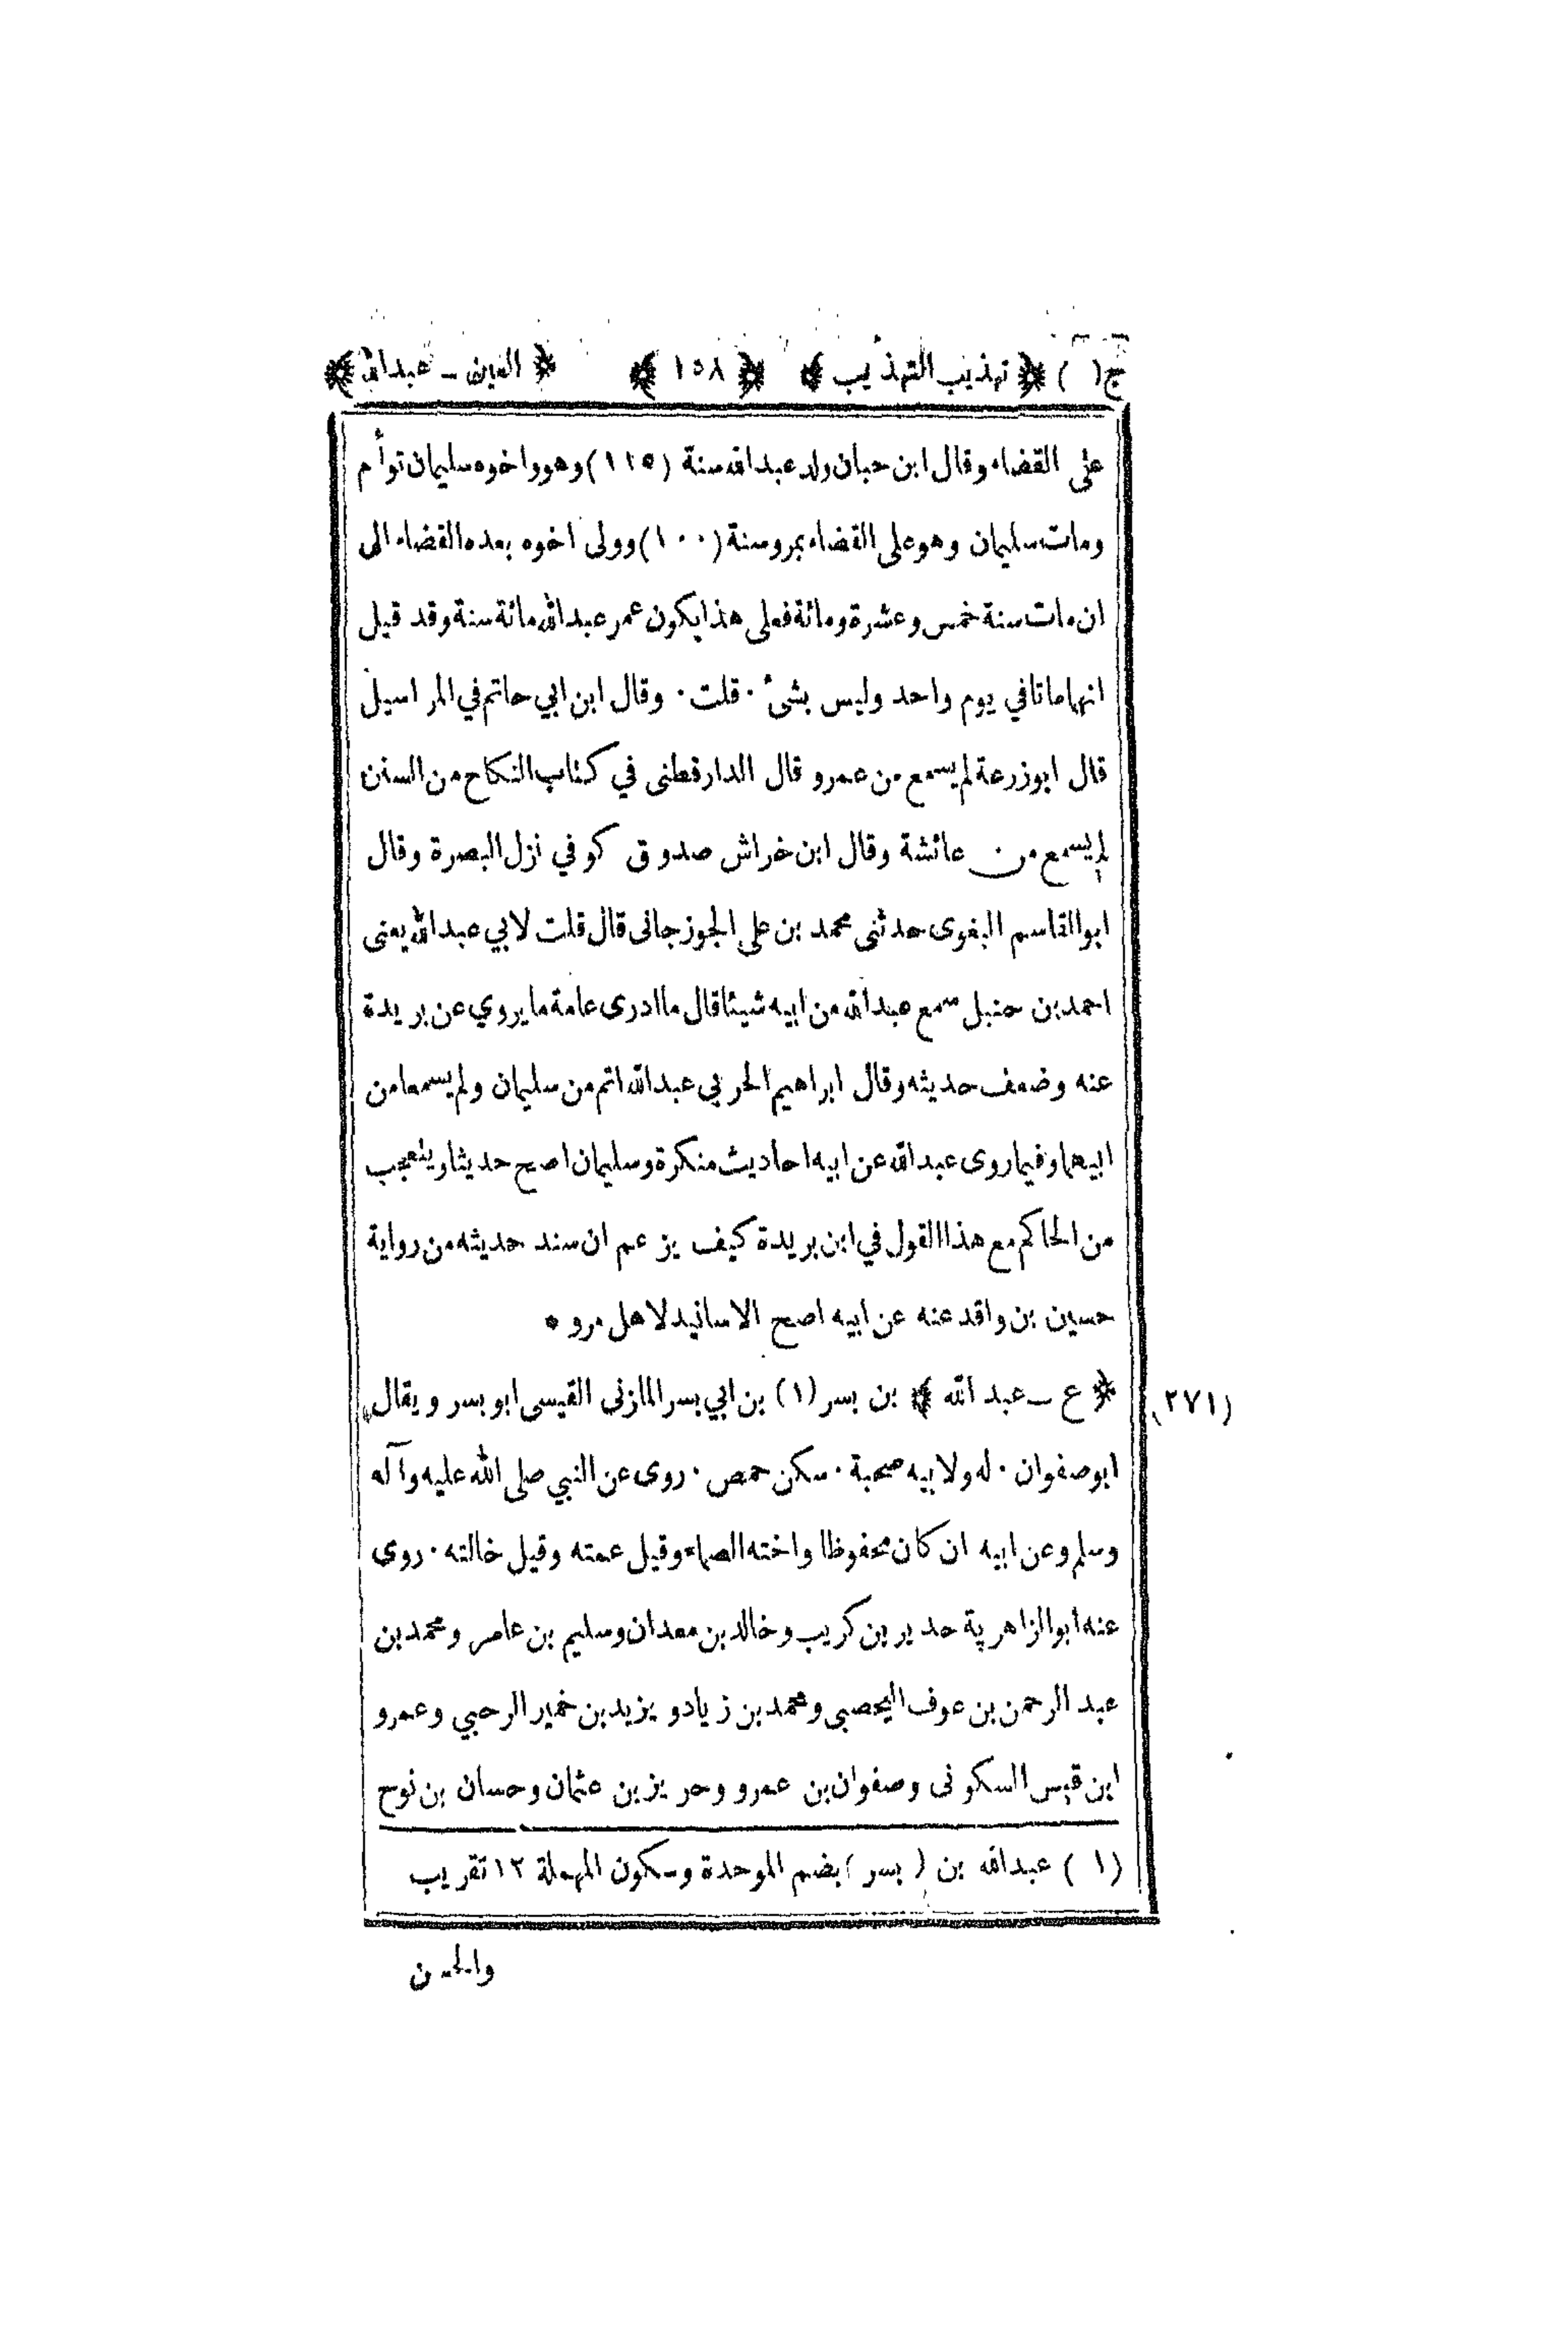 ج ( ) ﴿ تهذيب التهذيب ﴾ ﴿ ١٥٨ ﴾ ﴿ العين ـ عبدالله ﴾
على القضاء وقال ابن حبان ولد عبدالله سنة (١١٥) وهو واخوه سليمان توأم
ومات سليمان وهو على القضاء بمرو سنة (١٠٠) وولى اخوه بعده القضاء الى
ان مات سنة خمس وعشرة ومائة فعلى هذا يكون عمر عبدالله مائة سنة وقد قيل
انهما ماتا في يوم واحد وليس بشئ ٠ قلت ٠ وقال ابن ابي حاتم في المراسيل
قال ابو زرعة لم يسمع من عمر و قال الدارقطنى في كتاب النكاح من السنن
لم يسمع من عائشة وقال ابن خراش صدوق كوفي نزل البصرة وقال
ابو القاسم البغوى حدثنى محمد بن على الجوزجانى قال قلت لابي عبدالله يعنى
احمد بن حنبل سمع عبدالله من ابيه شيئا قال ما ادرى عامة ما يروي عن بريدة
عنه وضعف حديثه وقال ابراهيم الحربي عبدالله اتم من سليمان ولم يسمعا من
ابيهما وفيما روى عبدالله عن ابيه احاديث منكرة وسليمان اصح حديثا ويتعجب
من الحاكم مع هذا القول في ابن بريدة كيف يزعم ان سند حديثه من رواية
حسين بن واقد عنه عن ابيه اصح الاسانيد لاهل مرو *
﴿ ع ـ عبد الله ﴾ بن بسر (١) بن ابي بسر المازنى القيسى ابو بسر ويقال (٢٧١)
ابو صفوان ٠ له ولابيه صحبة ٠ سكن حمص ٠ روى عن النبي صلى الله عليه وآله
وسلم وعن ابيه ان كان محفوظا واخته الصماء وقيل عمته وقيل خالته ٠ روى
عنه ابو الزاهرية حدير بن كريب وخالد بن معدان وسليم بن عامر ومحمد بن
عبد الرحمن بن عوف اليحصبى ومحمد بن زياد و يزيد بن خمير الرحبي وعمرو
ابن قيس السكونى وصفوان بن عمرو وحريز بن عثمان وحسان بن نوح
(١) عبدالله بن (بسر) بضم الموحدة وسكون المهملة ١٢ تقريب